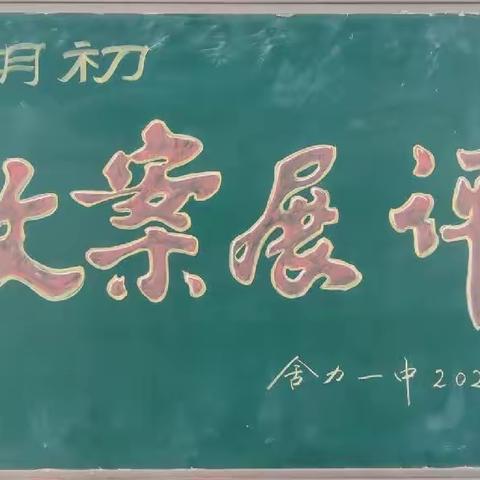 月初
教案展评
舍力一中202